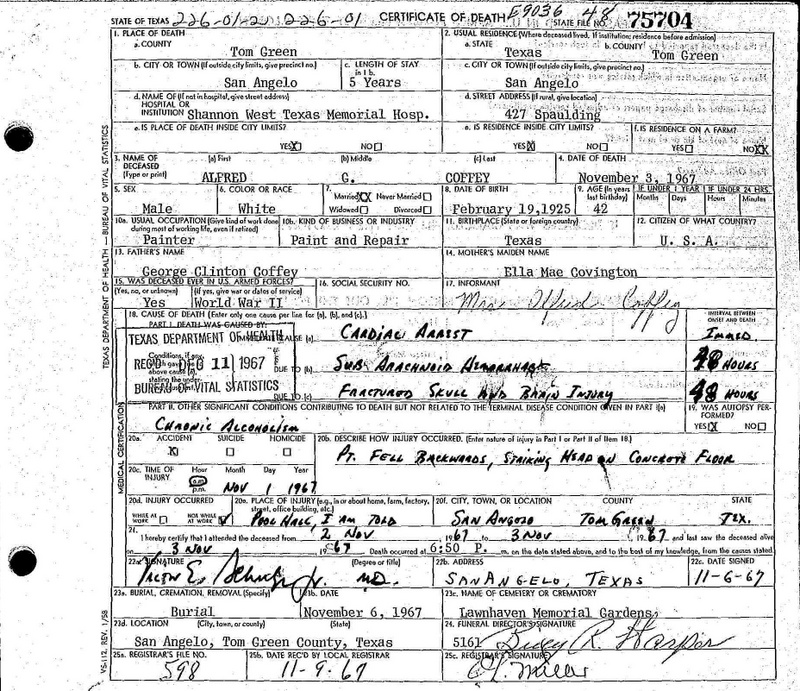 STATE OF TEXAS 226-01-2 226-01 CERTIFICATE OF DEATH E9036 48 STATE FILE NO. 75704
1. PLACE OF DEATH
a. COUNTY
Tom Green
2. USUAL RESIDENCE (Where deceased lived. If institution: residence before admission)
a. STATE
Texas
b. COUNTY
Tom Green
b. CITY OR TOWN (If outside city limits, give precinct no.)
San Angelo
c. LENGTH OF STAY in 1 b.
5 Years
c. CITY OR TOWN (If outside city limits, give precinct no.)
San Angelo
d. NAME OF (If not in hospital, give street address)
HOSPITAL OR
INSTITUTION Shannon West Texas Memorial Hosp.
d. STREET ADDRESS (If rural, give location)
427 Spaulding
e. IS PLACE OF DEATH INSIDE CITY LIMITS?
YES X NO
e. IS RESIDENCE INSIDE CITY LIMITS?
YES X NO
f. IS RESIDENCE ON A FARM?
YES NO XX
3. NAME OF DECEASED (Type or print)
(a) First (b) Middle (c) Last
ALFRED G. COFFEY
4. DATE OF DEATH
November 3, 1967
5. SEX
Male
6. COLOR OR RACE
White
7. Married XX Never Married
Widowed Divorced
8. DATE OF BIRTH
February 19,1925
9. AGE (In years last birthday)
42
IF UNDER 1 YEAR IF UNDER 24 HRS.
Months Days Hours Minutes
10a. USUAL OCCUPATION (Give kind of work done during most of working life, even if retired)
Painter
10b. KIND OF BUSINESS OR INDUSTRY
Paint and Repair
11. BIRTHPLACE (State or foreign country)
Texas
12. CITIZEN OF WHAT COUNTRY?
U. S. A.
13. FATHER'S NAME
George Clinton Coffey
14. MOTHER'S MAIDEN NAME
Ella Mae Covington
15. WAS DECEASED EVER IN U.S. ARMED FORCES?
(Yes, no, or unknown) (If yes, give war or dates of service)
Yes World War II
16. SOCIAL SECURITY NO.
17. INFORMANT
Mrs Alfred Coffey
18. CAUSE OF DEATH (Enter only one cause per line for (a), (b), and (c).)
INTERVAL BETWEEN ONSET AND DEATH
PART I. DEATH WAS CAUSED BY:
Cardiac Arrest Immed
TEXAS DEPARTMENT OF HEALTH
REC'D DEC 11 1967
BUREAU OF VITAL STATISTICS
DUE TO (b) Sub Arachnoid Hemorrhage 48 Hours
DUE TO (c) Fractured Skull and Brain Injury 48 Hours
PART II. OTHER SIGNIFICANT CONDITIONS CONTRIBUTING TO DEATH BUT NOT RELATED TO THE TERMINAL DISEASE CONDITION GIVEN IN PART I(a)
Chronic Alcoholism
19. WAS AUTOPSY PERFORMED?
YES X NO
20a. ACCIDENT SUICIDE HOMICIDE
X
20b. DESCRIBE HOW INJURY OCCURRED. (Enter nature of injury in Part I or Part II of Item 18.)
Pt. Fell Backwards, Striking Head on Concrete Floor
20c. TIME OF INJURY Hour Month Day Year
a.m. p.m. Nov 1 1967
20d. INJURY OCCURRED
WHILE AT WORK NOT WHILE AT WORK
20e. PLACE OF INJURY (e.g., in or about home, farm, factory, street, office building, etc.)
Pool Hall, I am told
20f. CITY, TOWN, OR LOCATION COUNTY STATE
San Angelo Tom Green Tex.
21. I hereby certify that I attended the deceased from 2 Nov 1967 to 3 Nov, 1967 and last saw the deceased alive
on 3 Nov 1967 Death occurred at 6:50 P. m. on the date stated above, and to the best of my knowledge, from the causes stated.
22a. SIGNATURE (Degree or title)
Jr. MD.
22b. ADDRESS
San Angelo, Texas
22c. DATE SIGNED
11-6-67
23a. BURIAL, CREMATION, REMOVAL (Specify)
Burial
23b. DATE
November 6, 1967
23c. NAME OF CEMETERY OR CREMATORY
Lawnhaven Memorial Gardens
23d. LOCATION (City, town, or county) (State)
San Angelo, Tom Green County, Texas
24. FUNERAL DIRECTOR'S SIGNATURE
5161 R. Harper
25a. REGISTRAR'S FILE NO.
598
25b. DATE REC'D BY LOCAL REGISTRAR
11-9-67
25c. REGISTRAR'S SIGNATURE
Miller
TEXAS DEPARTMENT OF HEALTH — BUREAU OF VITAL STATISTICS
MEDICAL CERTIFICATION
VS-112, REV. 1/58